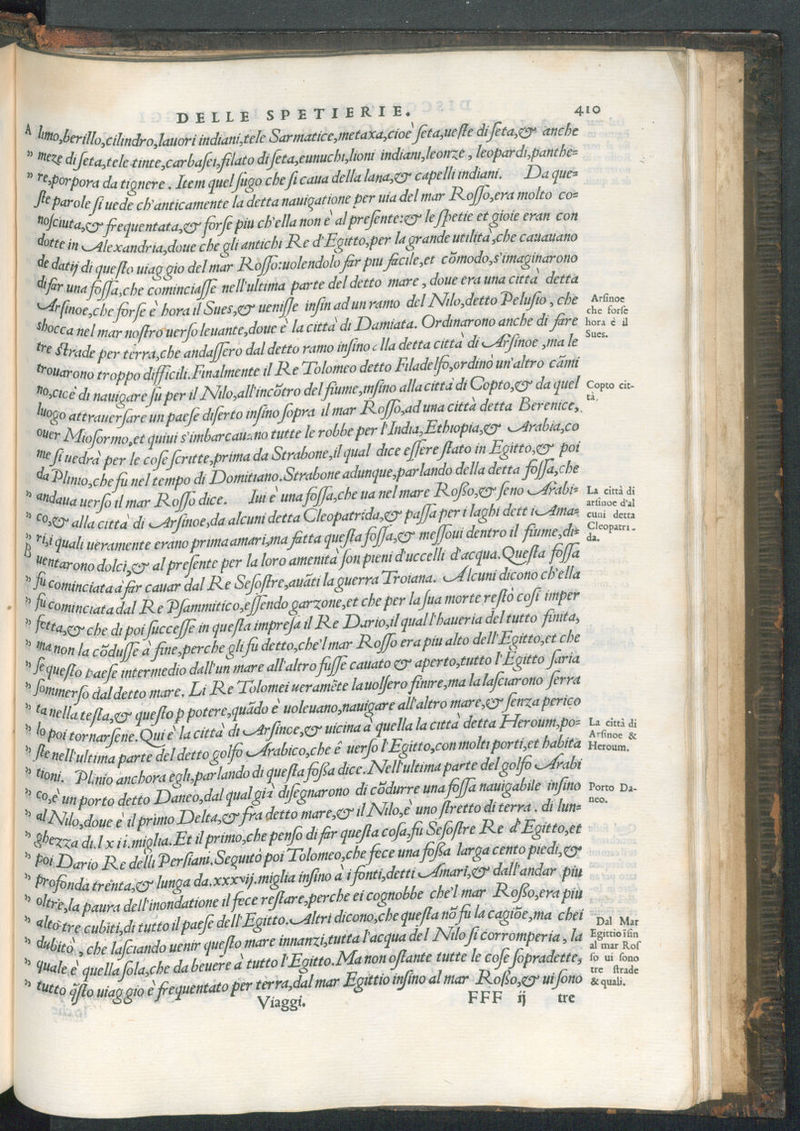 DELLE SPETIERIE. 410
A limo,berillo,cilindro,lauori indiani,tele Sarmatice,metaxa,cioe ſeta,ueſte di ſeta,& anche
» meze di ſeta,tele tinte,carbaſei,filato di ſeta,eunuchi,lioni indiani,leonze, leopardi,panthe=
» re,porpora da tignere. Item quel ſugo che ſi caua della lana,& capelli indiani. Da que=
ſte parole ſi uede ch'anticamente la detta nauigatione per uia del mar Roſſo,era molto co=
noſciuta,& frequentata,& forſe piu ch'ella non è al preſente:& le ſpetie et gioie eran con
dotte in Alexandria,doue che gli antichi Re d'Egitto,per la grande utilita,che cauauano
de datij di queſto uiaggio del mar Roſſo:uolendolo far piu facile,et cõmodo,s'imaginarono
di far una foſſa,che cominciaſſe nell'ultima parte del detto mare, doue era una città detta
Arſinoe,che forſe è hora il Sues,& ueniſſe infin ad un ramo del Nilo,detto Peluſio, che
sbocca nel mar noſtro uerſo leuante,doue è la città di Damiata. Ordinarono anche di fare
tre ſtrade per terra,che andaſſero dal detto ramo inſino alla detta città di Arſinoe,ma le
trouarono troppo difficili.Finalmente il Re Tolomeo detto Filadelfo,ordinò un'altro cãmi
no,cioè di nauigare ſu per il Nilo,all'incõtro del fiume,inſino alla città di Copto,& da quel
luogo attrauerſare un paeſe diſerto inſino ſopra il mar Roſſo,ad una città detta Berenice,
ouer Mioſormo,et quiui s'imbarcauano tutte le robbe per l'India,Ethiopia,& Arabia,co
me ſi uedrà per le coſe ſcritte,prima da Strabone,il qual dice eſſere ſtato in Egitto,& poi
da Plinio,che fu nel tempo di Domitiano.Strabone adunque,parlando della detta foſſa,che
» andaua uerſo il mar Roſſo dice. Iui è una foſſa,che ua nel mare Roßo,& ſeno Arabi=
» co,& alla città di Arſinoe,da alcuni detta Cleopatrida,& paſſa per i laghi detti Ama=
» ri,i quali ueramente erano prima amari,ma fatta queſta foſſa,& meſſoui dentro il fiume,di=
B uentarono dolci,& al preſente per la loro amenità ſon pieni d'uccelli d'acqua.Queſta foſſa
» fu cominciata à far cauar dal Re Seſoſtre,auãti la guerra Troiana. Alcuni dicono ch'ella
» fu cominciata dal Re Pſammitico,eſſendo garzone,et che per la ſua morte reſtò coſi imper
» fetta,& che di poi ſucceſſe in queſta impreſa il Re Dario,il qual l'haueria del tutto finita,
» ma non la cõduſſe à fine,perche gli fu detto,che'l mar Roſſo era piu alto dell'Egitto,et che
» ſe queſto paeſe intermedio dall'un mare all'altro fuſſe cauato & aperto,tutto l'Egitto ſaria
» ſommerſo dal detto mare. Li Re Tolomei ueramẽte la uolſero finire,ma la laſciarono ſerra
» ta nella teſta,& queſto p potere,quãdo è uoleuano,nauigare all'altro mare,& ſenza perico
» lo poi tornarſene.Qui è la città di Arſinoe,& uicina à quella la città detta Heroum,po=
» ſte nell'ultima parte del detto golfo Arabico,che è uerſo l'Egitto,con molti porti,et habita
» tioni. Plinio anchora egli,parlando di queſta foßa dice.Nell'ultima parte del golfo Arabi
» co,è un porto detto Daneo,dal qual già diſegnarono di cõdurre una foſſa nauigabile inſino
» al Nilo,doue è il primo Delta,& fra detto mare,& il Nilo,è uno ſtretto di terra. di lun=
» ghezza di.lxii.miglia.Et il primo,che penſo di far queſta coſa,fu Seſoſtre Re d'Egitto,et
» poi Dario Re delli Perſiani.Seguitò poi Tolomeo,che fece una foßa larga cento piedi,&
» profonda trenta,& lunga da.xxxvij.miglia inſino a i fonti,detti Amari,& dall'andar piu
» oltre,la paura dell'inondatione il fece reſtare,perche ei cognobbe che'l mar Roßo,era piu
» alto tre cubiti,di tutto il paeſe dell'Egitto.Altri dicono,che queſta nõ fu la cagiõe,ma chei
» dubitò, che laſciando uenir queſto mare innanzi,tutta l'acqua del Nilo ſi corromperia, la
» quale è quella ſola,che da beuere à tutto l'Egitto.Ma non oſtante tutte le coſe ſopradette,
» tutto q̃ſto uiaggio è frequentato per terra,dal mar Egittio inſino al mar Roßo,& ui ſono
Viaggi. FFF ij tre
Arſinoe
che forſe
hora è il
Sues.
Copto cit-
tà.
La città di
arſinoe d'al
cuni detta
Cleopatri-
da.
La città di
Arſinoe &
Heroum.
Porto Da-
neo.
Dal Mar
Egittio iſin
al mar Roſ
ſo ui ſono
tre ſtrade
& quali.